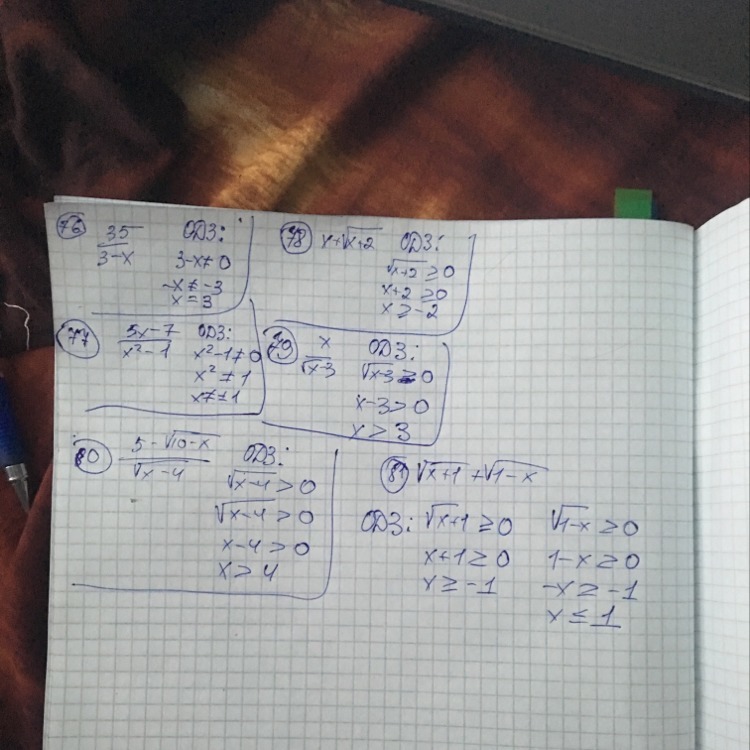 76 35/(3-x) ОДЗ:
3-x≠0
-x≠-3
x=3
78 x+√(x+2) ОДЗ:
√(x+2) ≥0
x+2 ≥0
x≥-2
77 (5x-7)/(x²-1) ОДЗ:
x²-1≠0
x²≠1
x≠±1
79 x/√(x-3) ОДЗ:
√(x-3) >0
x-3>0
x>3
80 (5-√(10-x))/√(x-4) ОДЗ:
√(x-4) >0
√(x-4) >0
x-4>0
x>4
81 √(x+1) +√(1-x)
ОДЗ: √(x+1) ≥0 √(1-x) ≥0
x+1≥0 1-x≥0
x≥-1 -x≥-1
x≤1